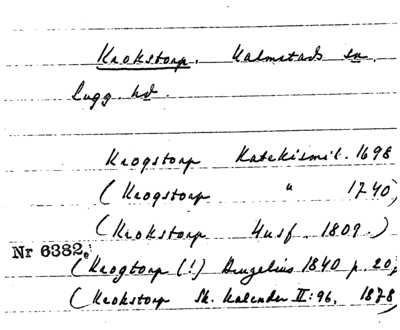 Krokstorp. Kalmstads sn.
Lugg. hd.
Krogstorp Katekismil. 1698
(Krogstorp " 1740)
(Krokstorp Husf. 1809.)
Nr 6382.
(Krogtorp (!) Bruzelius 1840 p. 20)
(Krokstorp Sk. Kalender II:96, 1878)